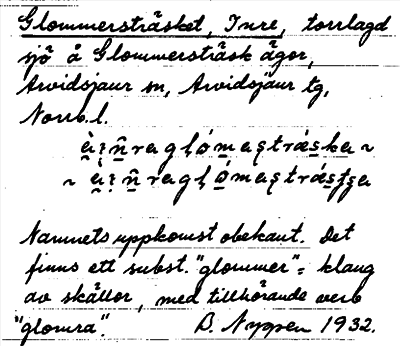 Glommersträsket, Inre, torrlagd
sjö å Glommersträsk ägor,
Arvidsjaur sn, Arvidsjaur tg,
Norrb.l.
Namnets uppkomst obekant. Det
finns ett subst. "glommer" = klang
av skällor, med tillhörande verb
"glomra". B. Nygren 1932.